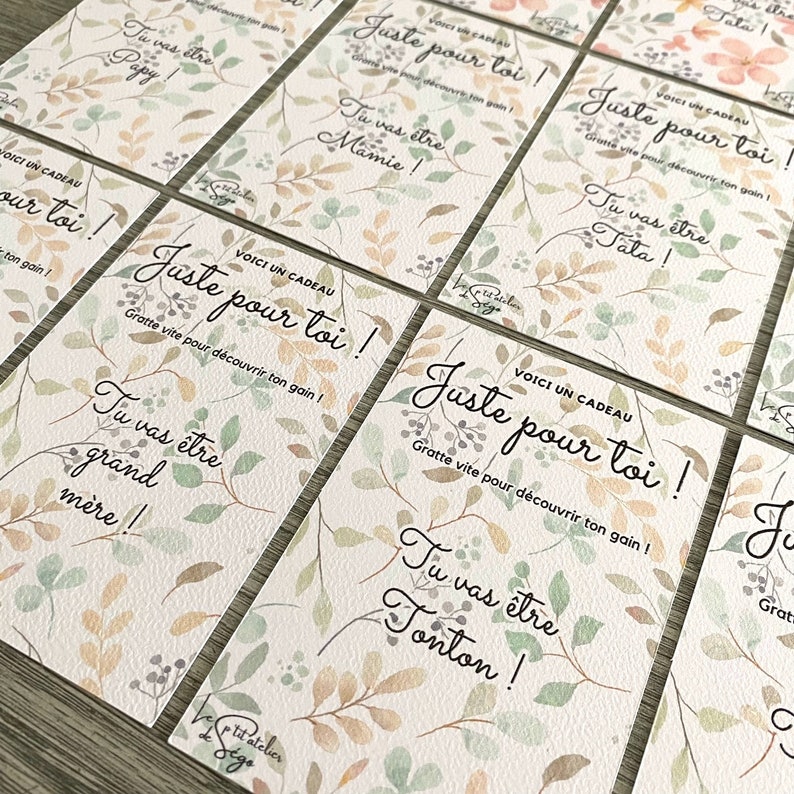 Tu vas être
Papy !
VOICI UN CADEAU
Juste pour toi !
Gratte vite pour découvrir ton gain !
Tu vas être
Mamie !
Le
P'tit atelier
de
Ségo
Tu vas être
Tata !
VOICI UN CADEAU
Juste pour toi !
Gratte vite pour découvrir ton gain !
Tu vas être
Tata !
Le
P'tit atelier
de
Ségo
VOICI UN CADEAU
pour toi !
découvrir ton gain !
VOICI UN CADEAU
Juste pour toi !
Gratte vite pour découvrir ton gain !
Tu vas être
grand
mère !
VOICI UN CADEAU
Juste pour toi !
Gratte vite pour découvrir ton gain !
Tu vas être
Tonton !
Le
P'tit atelier
de
Ségo